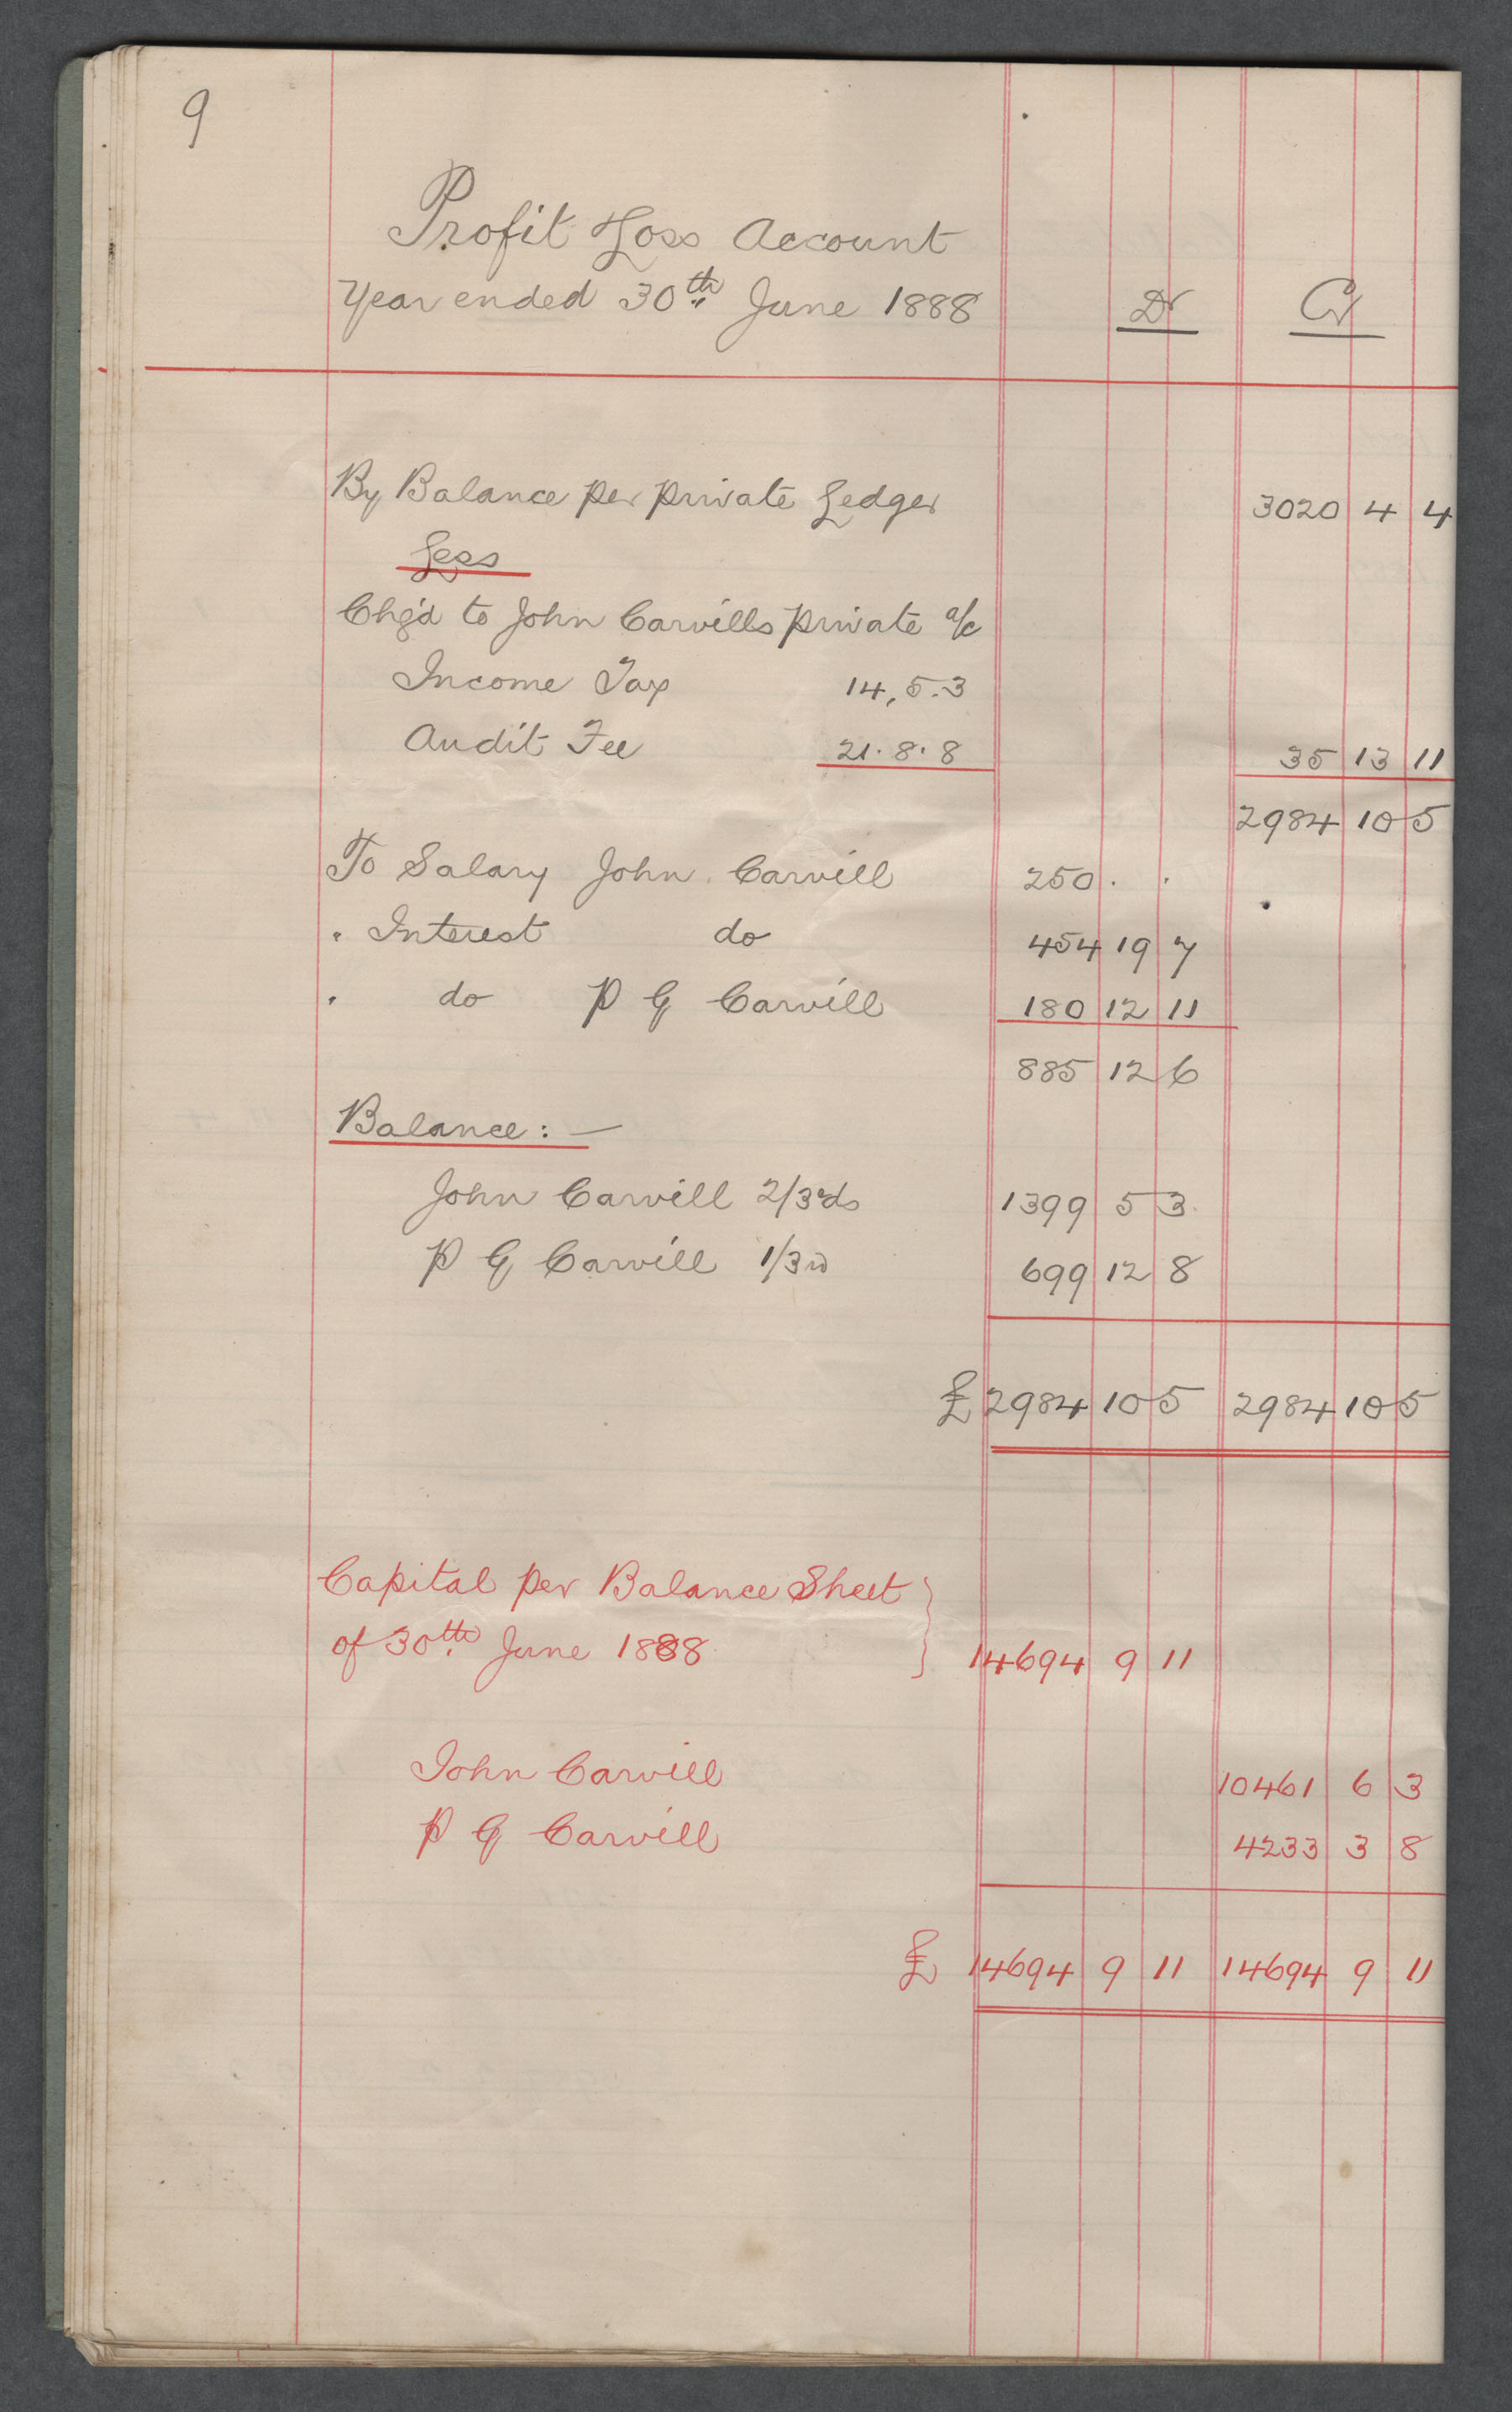 9
Profit & Loss Account
Year ended 30th June 1888 Dr Cr
By Balance per private Ledger 3020 4 4
Less
Chg'd to John Carvills private a/c
Income Tax 14, 5. 3
Audit Fee 21. 8. 8 35 13 11
2984 10 5
To Salary John Carvill 250 . .
" Interest do 454 19 7
" do P G Carvill 180 12 11
885 12 6
Balance : —
John Carvill 2/3rds 1399 5 3
P G Carvill 1/3rd 699 12 8
£ 2984 10 5 2984 10 5
Capital per Balance Sheet }
of 30th June 1888 } 14694 9 11
John Carvill 10461 6 3
P G Carvill 4233 3 8
£ 14694 9 11 14694 9 11